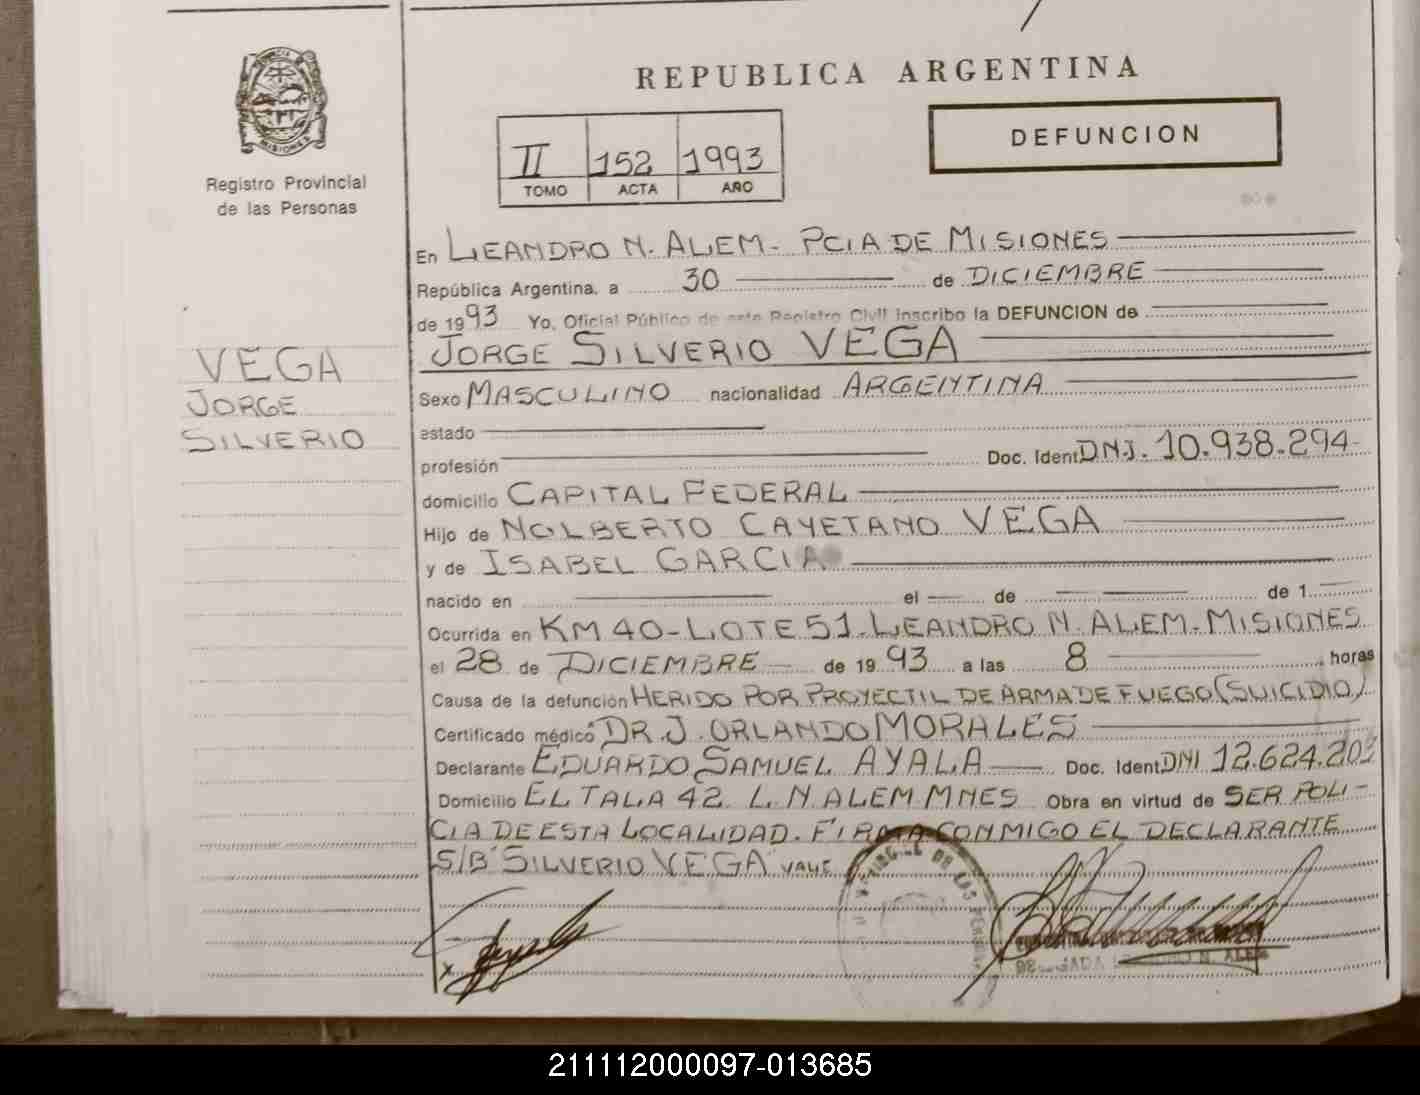 PROVINCIA DE
MISIONES
Registro Provincial
de las Personas
VEGA
JORGE
SILVERIO
REPUBLICA ARGENTINA
DEFUNCION
II 152 1993
TOMO ACTA AÑO
En LEANDRO N. ALEM - PCIA DE MISIONES
República Argentina, a 30 de DICIEMBRE
de 1993 Yo, Oficial Público de este Registro Civil inscribo la DEFUNCION de
JORGE SILVERIO VEGA
Sexo MASCULINO nacionalidad ARGENTINA
estado
profesión Doc. Ident DNI. 10.938.294
domicilio CAPITAL FEDERAL
Hijo de NOLBERTO CAYETANO VEGA
y de ISABEL GARCIA
nacido en el de de 1
Ocurrida en KM 40 - LOTE 51. LEANDRO N. ALEM - MISIONES
el 28 de DICIEMBRE de 1993 a las 8 horas
Causa de la defunción HERIDO POR PROYECTIL DE ARMA DE FUEGO (SUICIDIO)
Certificado médico DR. J. ORLANDO MORALES
Declarante EDUARDO SAMUEL AYALA Doc. Ident DNI 12.624.203
Domicilio EL TALA 42. L. N. ALEM MNES Obra en virtud de SER POLI-
CIA DE ESTA LOCALIDAD. FIRMA CONMIGO EL DECLARANTE
S/B "SILVERIO VEGA" VALE
DE LAS
N. ALEM
211112000097-013685